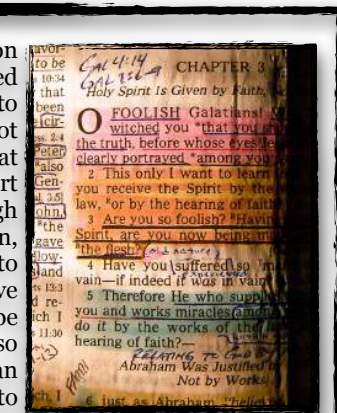 on
ed
to
ot
at
rt
gh
n,
to
ve
be
so
an
to
avor-
to be
10:34
that
been
[cir-
ss. 2:4
Peter
also
Gen-
al. 3:5]
John,
"the
gave
llow-
and
ts 13:3
d re-
ich I
s 11:30
ch. I
GAL 4:14
CHAPTER 3
Holy Spirit Is Given by Faith,
O FOOLISH Galatians!
witched you "that you sh
the truth, before whose eyes
clearly portrayed "among you
2 This only I want to learn
you receive the Spirit by the
law, "or by the hearing of faith
3 Are you so foolish? "Havin
Spirit, are you now being ma
"the flesh?
4 Have you suffered so
vain—if indeed it was in vain
5 Therefore He who supp
you and works miracles among
do it by the works of the
hearing of faith?—
RELATING TO GOD BY
Abraham Was Justified
Not by Works
6 just as Abraham "believe